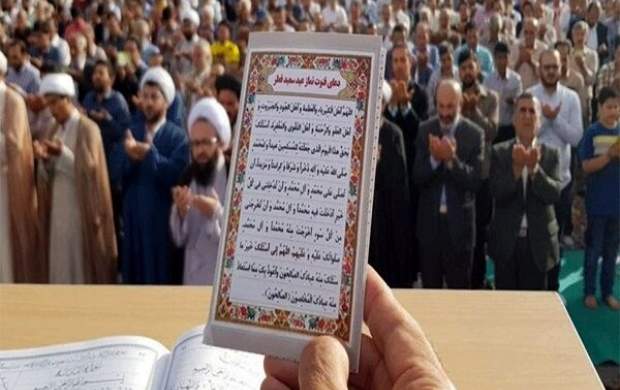 دعای قنوت نماز عید سعید فطر
اَللّهُمَّ اَهْلَ الْكِبْرِیاءِ وَالْعَظَمَةِ وَ اَهْلَ الْجُودِ وَالْجَبَرُوتِ وَ
اَهْلَ الْعَفْوِ وَالرَّحْمَةِ وَ اَهْلَ التَّقْوی وَالْمَغْفِرَةِ اَسْئَلُكَ
بِحَقِّ هذَا الْیَومِ الَّذی جَعَلْتَهُ لِلْمُسْلِمینَ عیداً وَ لِمُحَمَّد
صَلَّی اللهُ عَلَیْهِ وَ آلِهِ ذُخْراً وَ شَرَفاً وَ كَرامَةً وَ مَزیداً اَنْ
تُصَلِّیَ عَلی مُحَمَّد وَ آلِ مُحَمَّد وَ اَنْ تُدْخِلَنی فی كُلِّ
خَیْر اَدْخَلْتَ فیهِ مُحَمَّداً وَ آلَ مُحَمَّد وَ اَنْ تُخْرِجَنی
مِنْ كُلِّ سُوء اَخْرَجْتَ مِنْهُ مُحَمَّداً وَ آلَ مُحَمَّد
صَلَواتُكَ عَلَیْهِ وَ عَلَیْهِمْ اَللّهُمَّ اِنّی اَسْئَلُكَ خَیْرَ ما
سَئَلَكَ مِنْهُ عِبادُكَ الصّالِحُونَ وَ اَعُوذُ بِكَ مِمَّا اسْتَعاذَ
مِنْهُ عِبادُكَ الْمُخْلِصُونَ (الصّالِحُونَ).